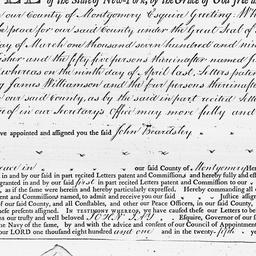 of the State of New-York, by the Grace of God free
our County of Montgomery Esquire Greeting: Wh
the peace for our said County under the Great Seal of
day of March one thousand seven hundred and nine
isher and the fifty five persons thereinafter named ju
whereas on the ninth day of April last, Letters paten
y James Williamson and the four persons thereinaf
our said county, as by the said in part recited Letter
e of in our Secretarys Office may more fully and
ve appointed and assigned you the said John Beardsley
eace in our said County of Montgomery Her
in and by our said in part recited Letters patent and Commissions and hereby fully and ef
granted in and by our said first in part recited Letters patent and Commission to our sa
, as if the same were herein and hereby particularly expressed. Hereby commanding all o
ent and Commissions named, to admit and receive you our said Justice assigned
of our said County, and all Constables, and other our Peace Officers, in our said County,
e presents assigned. IN TESTIMONY WHEREOF, we have caused these our Letters to be
ess our trusty and well beloved JOHN JAY Esquire, Governor of our sa
the Navy of the same, by and with the advice and consent of our Council of Appointment
our LORD one thousand eight hundred and one and in the twenty- fifth y